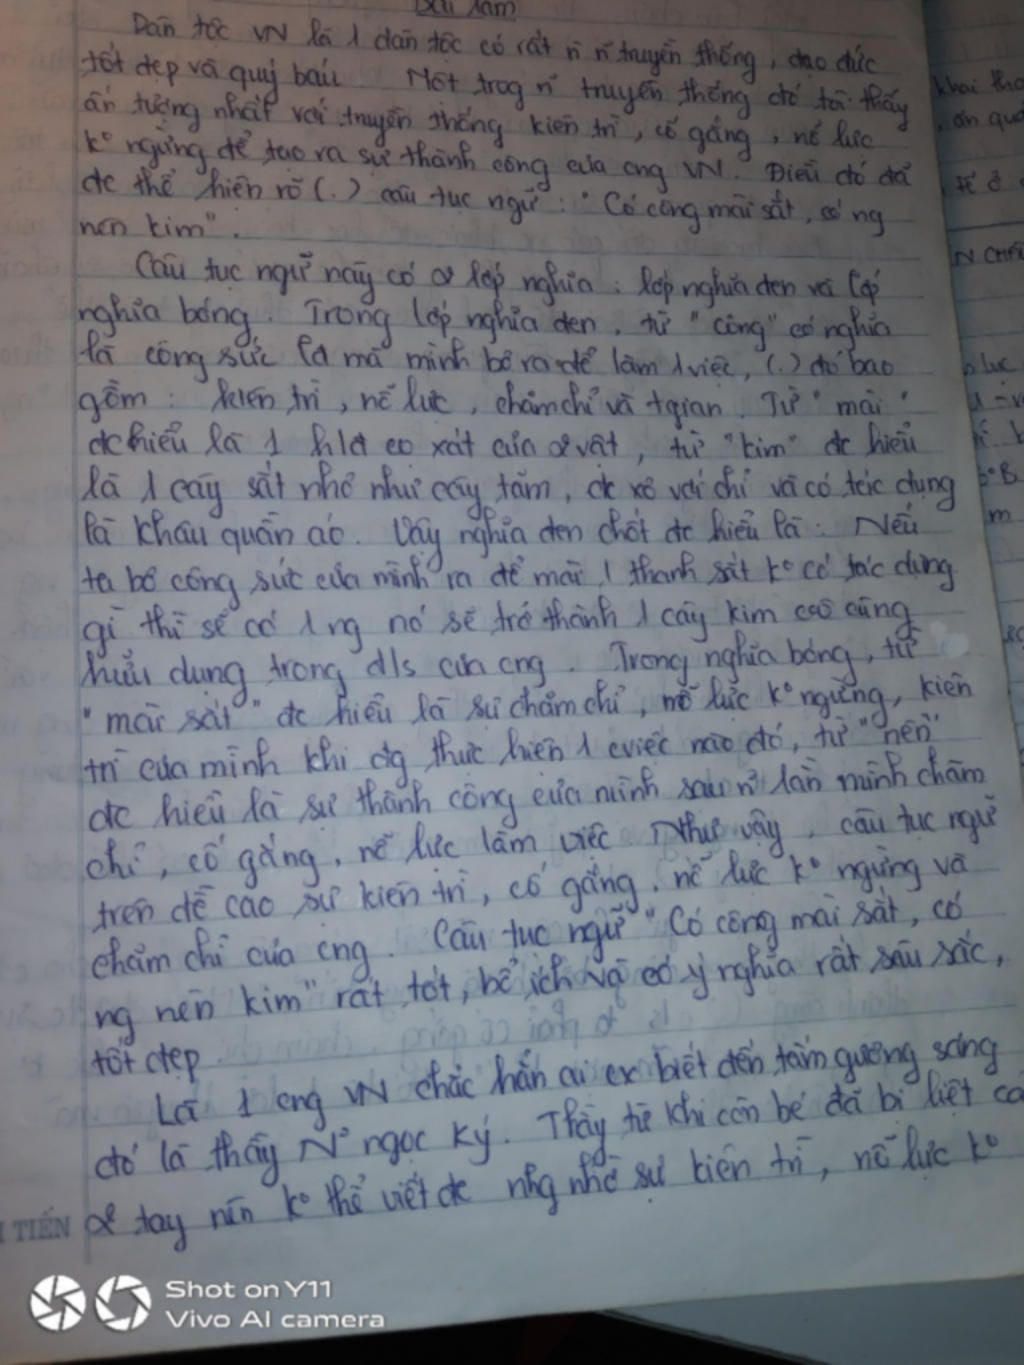 Bài làm
Dân tộc VN là 1 dân tộc có rất n n~ truyền thống, đạo đức
tốt đẹp và quý báu. Một trog n~ truyền thống đó tôi thấy
ấn tượng nhất với truyền thống kiên trì, cố gắng, nỗ lực
k° ngừng để tạo ra sự thành công của cng VN. Điều đó đã
đc thể hiện rõ (.) câu tục ngữ: "Có công mài sắt, có ng
nên kim".
Câu tục ngữ này có 2 lớp nghĩa: lớp nghĩa đen và lớp
nghĩa bóng. Trong lớp nghĩa đen, từ "công" có nghĩa
là công sức lđ mà mình bỏ ra để làm 1 việc, (.) đó bao
gồm: kiên trì, nỗ lực, chăm chỉ và tgian. Từ "mài"
đc hiểu là 1 hđ cọ xát của 2 vật, từ "kim" đc hiểu
là 1 cây sắt nhỏ như cây tăm, đc xỏ với chỉ và có tác dụng
là khâu quần áo. Vậy nghĩa đen chốt đc hiểu là: Nếu
ta bỏ công sức của mình ra để mài 1 thanh sắt k° có tác dụng
gì thì sẽ có 1 ng nó sẽ trở thành 1 cây kim vô cùng
hữu dụng trong đ/s của cng. Trong nghĩa bóng, từ
"mài sắt" đc hiểu là sự chăm chỉ, nỗ lực k° ngừng, kiên
trì của mình khi đg thực hiện 1 cviệc nào đó, từ "nên"
đc hiểu là sự thành công của mình sau n~ lần mình chăm
chỉ, cố gắng, nỗ lực làm việc. Như vậy, câu tục ngữ
trên đề cao sự kiên trì, cố gắng, nỗ lực k° ngừng và
chăm chỉ của cng. Câu tục ngữ "Có công mài sắt, có
ng nên kim" rất tốt, bổ ích và có ý nghĩa rất sâu sắc,
tốt đẹp.
Là 1 cng VN chắc hẳn ai cx biết đến tấm gương sáng
đó là thầy N° ngọc Ký. Thầy từ khi còn bé đã bị liệt cả
2 tay nên k° thể viết đc nhg nhờ sự kiên trì, nỗ lực k°
TIẾN
Shot on Y11
Vivo AI camera